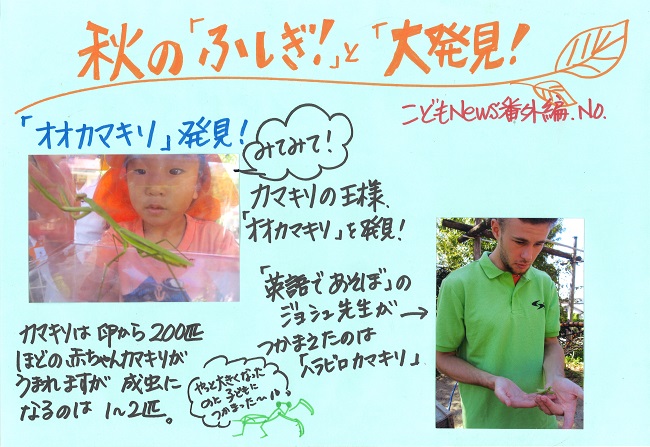 秋の「ふしぎ!」と「大発見!
こどもNews番外編.No.
「オオカマキリ」発見!
みてみて!
カマキリの王様、
「オオカマキリ」を発見!
「英語であそぼ」の
ジョシュ先生が→
つかまえたのは
「ハラビロカマキリ」
カマキリは卵から200匹
ほどの赤ちゃんカマキリが
うまれますが成虫に
なるのは1~2匹。
やっと大きくなった
のに子どもに
つかまった~!!